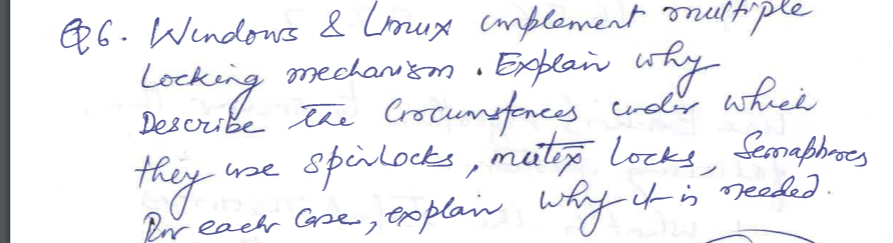 Q6. Windows & Linux implement multiple
Locking mechanism. Explain why
Describe the Circumstances under which
they use spinlocks, mutex locks, Semaphores
For each case, explain why it is needed.